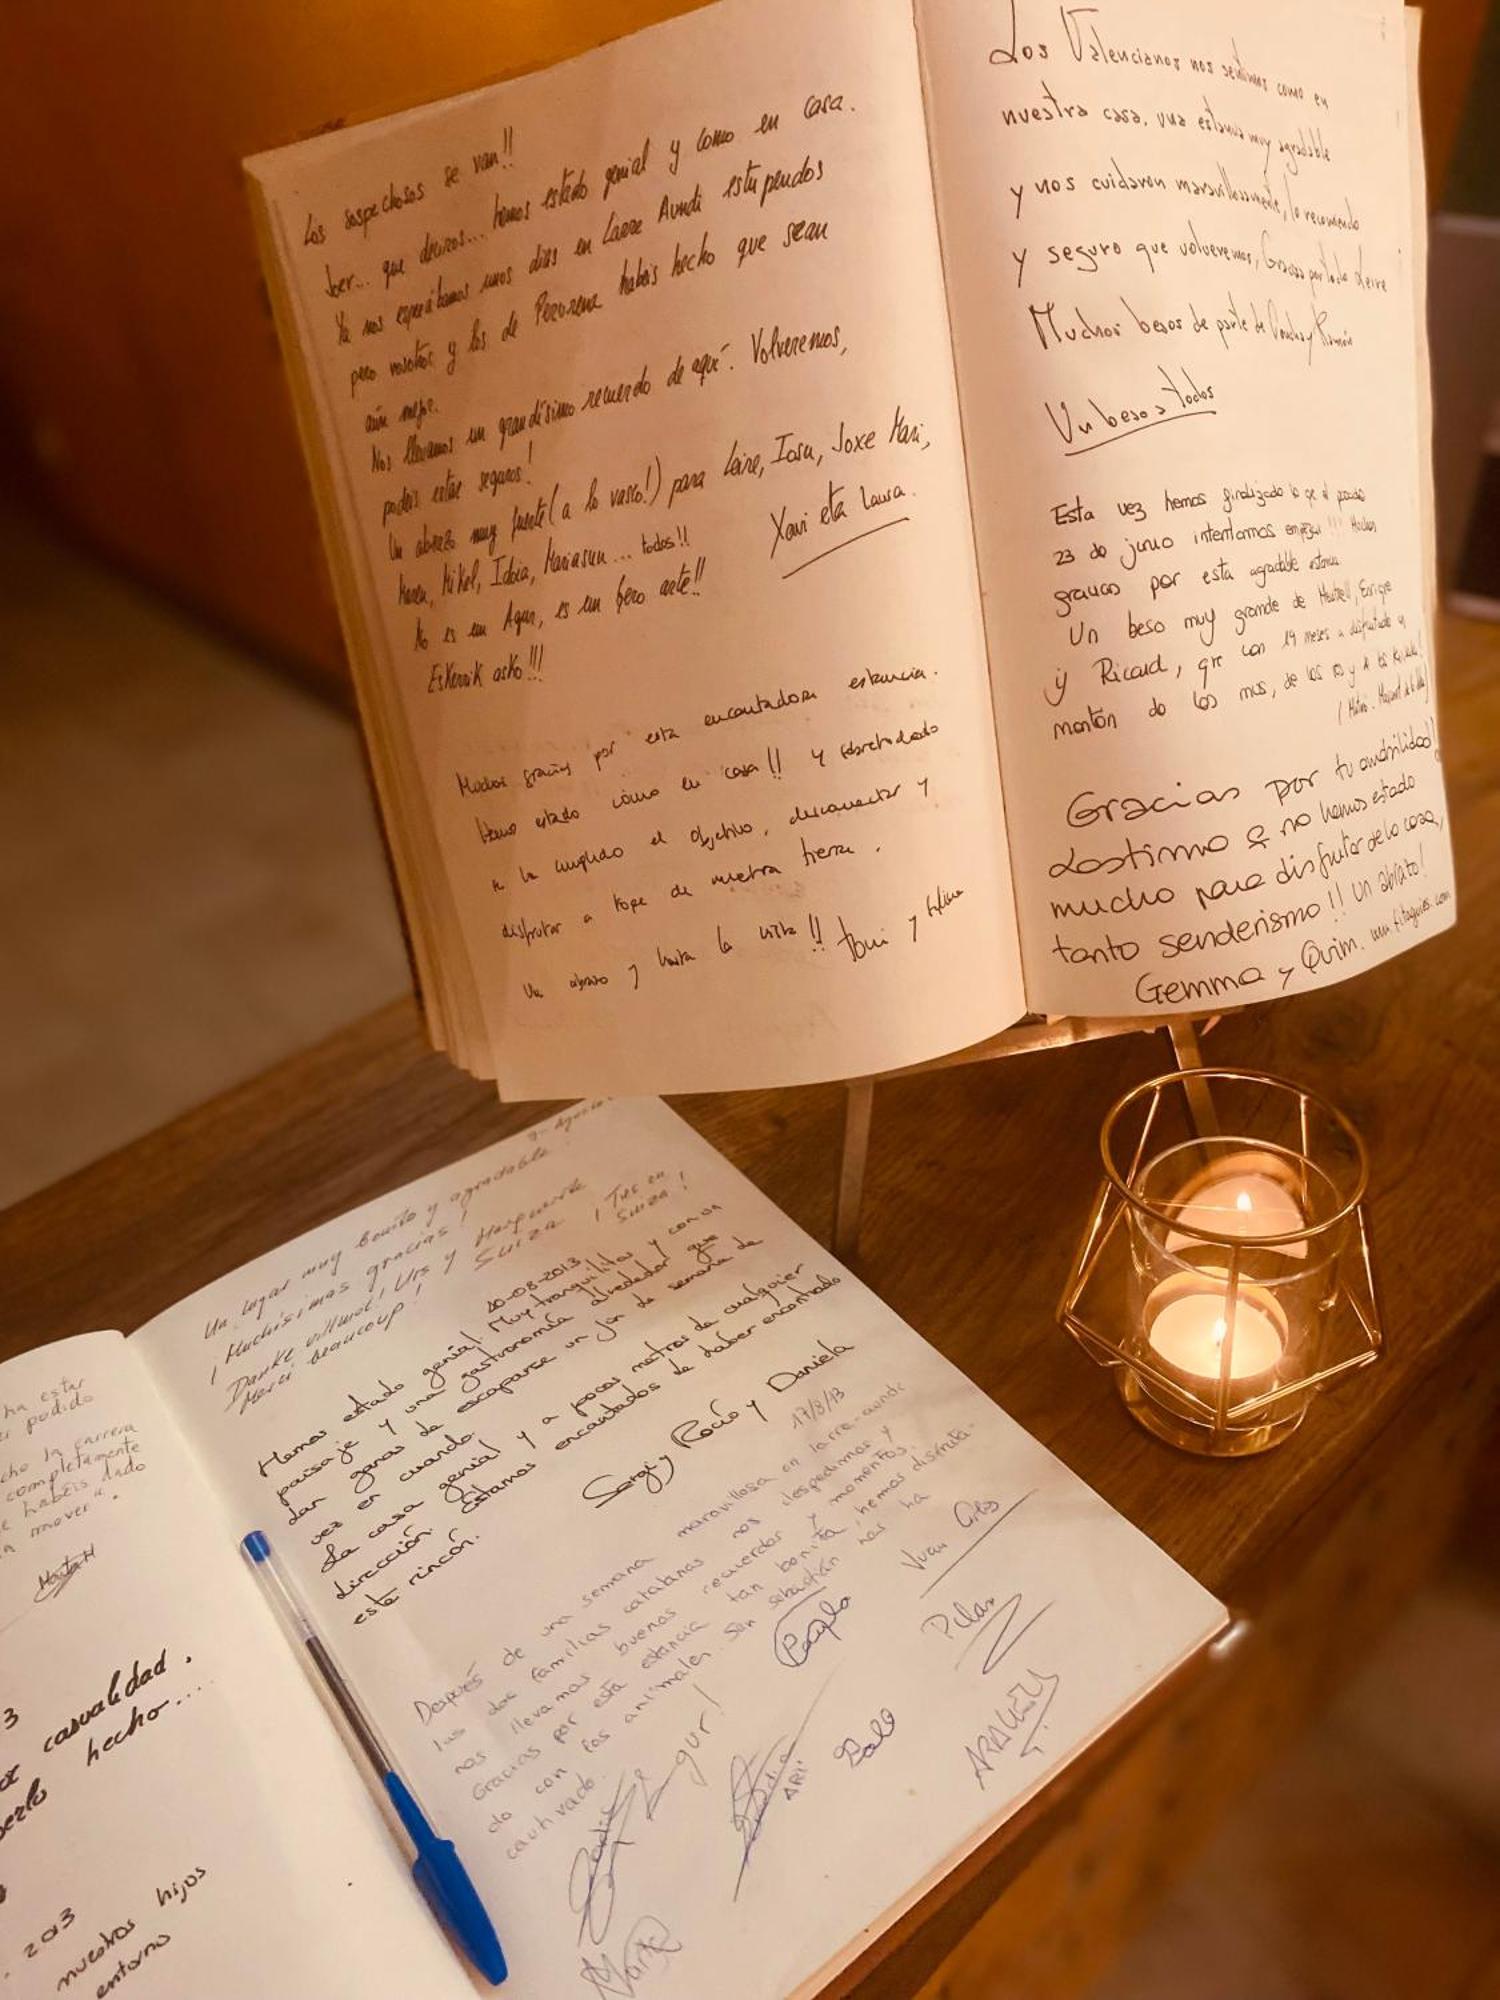 Los sospechosos se van!!
Joer... que deciros... hemos estado genial y como en casa.
Ya nos esperábamos unos dias en Larre Aundi estupendos
pero vosotros y los de Perurena habeis hecho que sean
aún mejor.
Nos llevamos un grandísimo recuerdo de aquí. Volveremos,
podeis estar seguros!
Un abrazo muy fuerte (a lo vasco!) para Leire, Iosu, Joxe Mari,
Karen, Mikel, Idoia, Mariasun... todos!!
No es un Agur, es un Gero arte!!
Xavi eta Laura.
Eskerrik asko!!!
Muchas gracias por esta encantadora estancia.
Hemos estado cómo en casa!! y sobretodo
se ha cumplido el objetivo, desconectar y
disfrutar a tope de nuestra tierra.
Un abrazo y hasta la vista!! Toni y
Los Valencianos nos sentimos como en
nuestra casa, una estancia muy agradable
y nos cuidaron maravillosamente, lo recomiendo
y seguro que volveremos, Gracias por todo Leire
Muchos besos de parte de Concha y Ramón
Un beso a todos
Esta vez hemos finalizado lo qe el pasado
23 de junio intentamos empezar!!! Muchas
gracias por esta agradable estancia.
Un beso muy grande de Enrique
y Ricard, qe con 19 meses a disfrutado un
montón de los mus, de los
Gracias por tu amabilidad!
Lastima q no hemos estado
mucho para disfrutar de la casa,
tanto senderismo!! Un abrazo!
Gemma y Quim.
Un lugar muy bonito y agradable!
¡Muchísimas gracias!
Danke villmol! Urs y Marguerite
Merci beaucoup! Suiza
20-08-2013
Hemos estado genial. Muy tranquilitos y con un
paisaje y una gastronomía alrededor que
dan ganas de escaparse un fin de semana de
vez en cuando.
La casa genial y a pocos metros de cualquier
dirección. Estamos encantados de haber encontrado
este rincón.
Sergi y Rocío y Daniela
17/8/13
Después de una semana maravillosa en larre-aundi
las dos familias catalanas nos despedimos y
nos llevamos buenos recuerdos y momentos.
Gracias por esta estancia tan bonita, hemos disfruta-
do con los animales. San Sebastián nos ha
cautivado.
Agur!
Juan
Pilar
ARI
Marta
ha estar
podido
cho la carrera
completamente
habéis dado
mover".
3
casualidad.
hecho....
2013
nuestros hijos
entorno